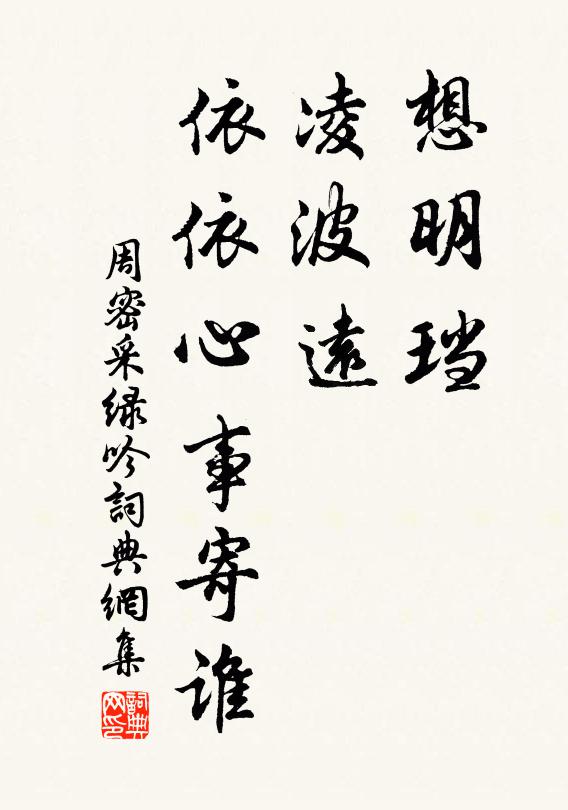 想明珰
凌波遠
依依心事寄谁
周密采绿吟詞典網集
詞典網印